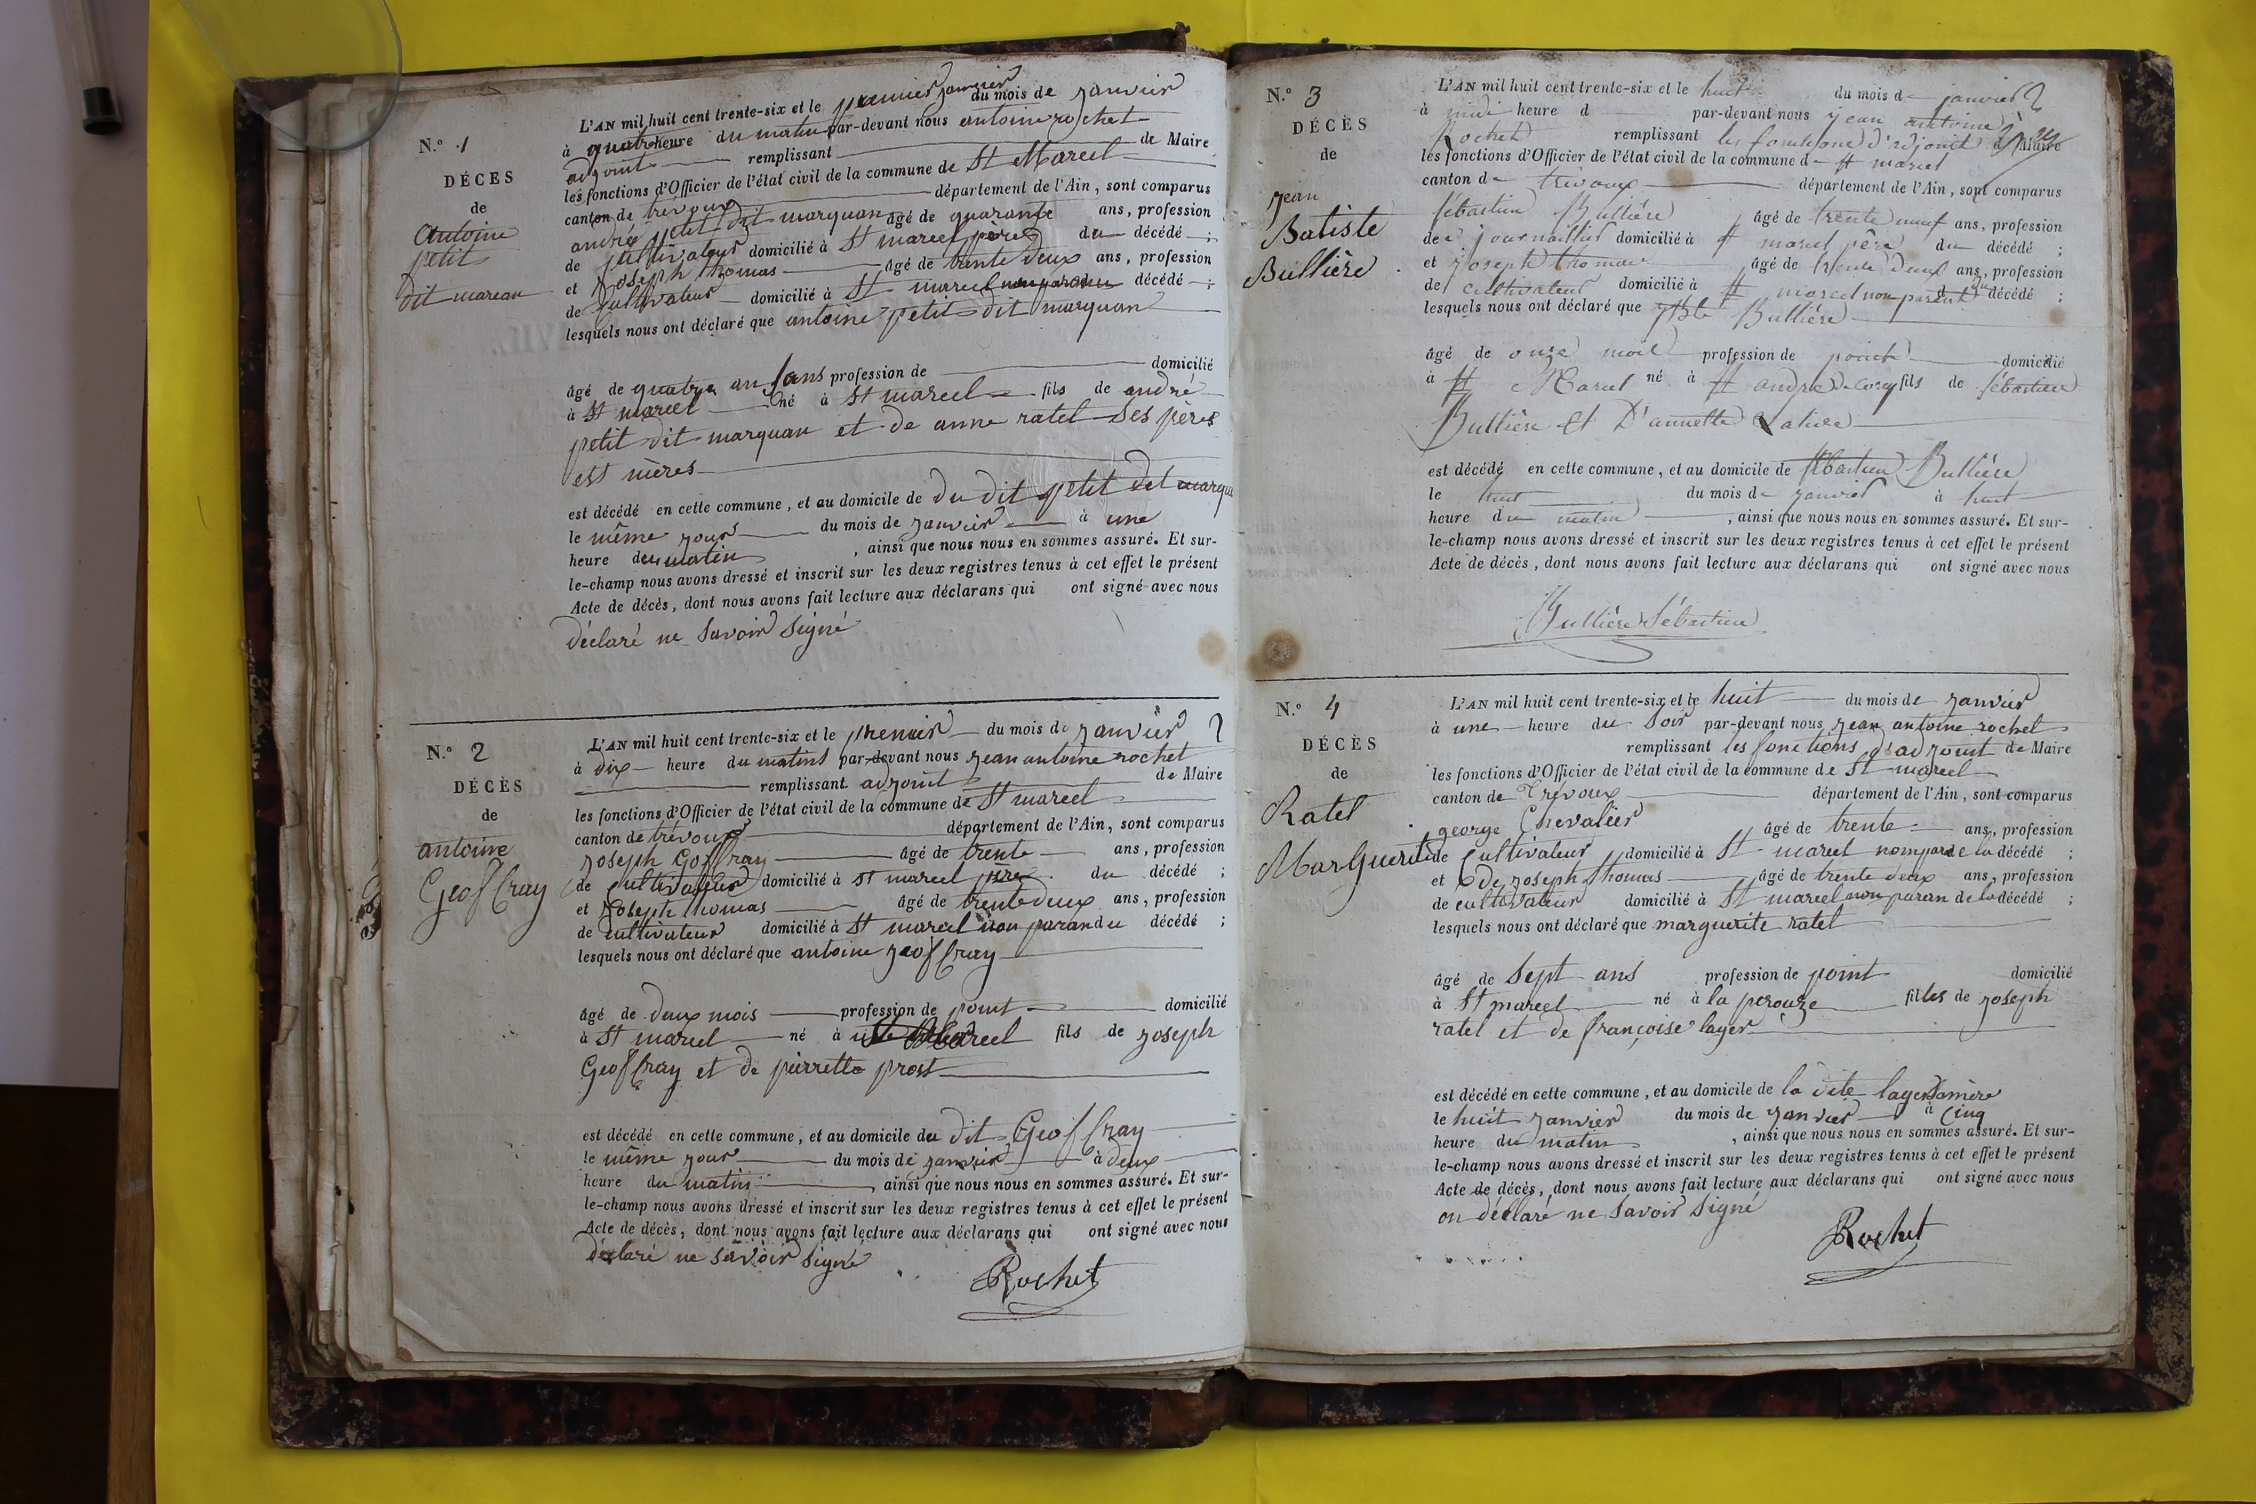 N.º 1
DÉCES
de
antoine
petit
dit marcan
L'AN mil huit cent trente-six et le premier janvier du mois de janvier
à quatre heure du matin par-devant nous antoine rochet
adjoint remplissant de Maire
les fonctions d'Officier de l'état civil de la commune de St Marcel
canton de trévoux département de l'Ain, sont comparus
andré petit dit marquan âgé de quarante ans, profession
de cultivateur domicilié à St marcel père du décédé ;
et joseph thomas âgé de trente deux ans, profession
de cultivateur domicilié à St marcel non parandu décédé ;
lesquels nous ont déclaré que antoine petit dit marquan
âgé de quatre ans profession de domicilié
à St marcel né à St marcel fils de andré
petit dit marquan et de anne ratel ses pères
est mères
est décédé en cette commune, et au domicile de du dit petit dit marqua
le même jour du mois de janvier à une
heure du matin , ainsi que nous nous en sommes assuré. Et sur-
le-champ nous avons dressé et inscrit sur les deux registres tenus à cet effet le présent
Acte de décès, dont nous avons fait lecture aux déclarans qui ont signé avec nous
déclaré ne savoir signé
N.º 2
DÉCÈS
de
antoine
Geoffray
L'AN mil huit cent trente-six et le premier du mois de janvier
à dix heure du matins par-devant nous jean antoine rochet
remplissant adjoint de Maire
les fonctions d'Officier de l'état civil de la commune de St marcel
canton de trévoux département de l'Ain, sont comparus
joseph Geoffray âgé de trente ans, profession
de cultivateur domicilié à St marcel père du décédé ;
et joseph thomas âgé de trente deux ans, profession
de cultivateur domicilié à St marcel non parandu décédé ;
lesquels nous ont déclaré que antoine geoffray
âgé de deux mois profession de point domicilié
à St marcel né à St Marcel fils de joseph
Geoffray et de pierrette prost
est décédé en cette commune, et au domicile du dit Geoffray
le même jour du mois de janvier à deux
heure du matin , ainsi que nous nous en sommes assuré. Et sur-
le-champ nous avons dressé et inscrit sur les deux registres tenus à cet effet le présent
Acte de décès, dont nous avons fait lecture aux déclarans qui ont signé avec nous
déclaré ne savoir signé
Rochet
N.º 3
DÉCÈS
de
jean
Batiste
Bullière
L'AN mil huit cent trente-six et le huit du mois de janvier
à midi heure d par-devant nous jean antoine
Rochet remplissant les fonctions d'adjoint de Maire
les fonctions d'Officier de l'état civil de la commune de St marcel
canton de trévoux département de l'Ain, sont comparus
Sébastien Bullière âgé de trente neuf ans, profession
de journaillier domicilié à St marcel père du décédé ;
et joseph thomas âgé de trente deux ans, profession
de cultivateur domicilié à St marcel non parent du décédé ;
lesquels nous ont déclaré que Bullière
âgé de onze mois profession de point domicilié
à St Marcel né à St andré de corcy fils de Sébastien
Bullière et D'annette
est décédé en cette commune, et au domicile de Sébastien Bullière
le huit du mois de janvier à huit
heure du matin , ainsi que nous nous en sommes assuré. Et sur-
le-champ nous avons dressé et inscrit sur les deux registres tenus à cet effet le présent
Acte de décès, dont nous avons fait lecture aux déclarans qui ont signé avec nous
Bullière Sébastien
N.º 4
DÉCÈS
de
Ratel
Marguerite
L'AN mil huit cent trente-six et le huit du mois de janvier
à une heure du soir par-devant nous jean antoine rochet
remplissant les fonctions d'adjoint de Maire
les fonctions d'Officier de l'état civil de la commune de St marcel
canton de Trévoux département de l'Ain, sont comparus
george Chevalier âgé de trente ans, profession
de cultivateur domicilié à St marcel de la décédé ;
et de joseph thomas âgé de trente deux ans, profession
de cultivateur domicilié à St marcel non paran de la décédé ;
lesquels nous ont déclaré que marguerite ratel
âgé de sept ans profession de point domicilié
à St marcel né à la perouze filles de joseph
ratel et de françoise lager
est décédé en cette commune, et au domicile de la dite lager sa mère
le huit janvier du mois de janvier à cinq
heure du matin , ainsi que nous nous en sommes assuré. Et sur-
le-champ nous avons dressé et inscrit sur les deux registres tenus à cet effet le présent
Acte de décès, dont nous avons fait lecture aux déclarans qui ont signé avec nous
on déclaré ne savoir signé
Rochet